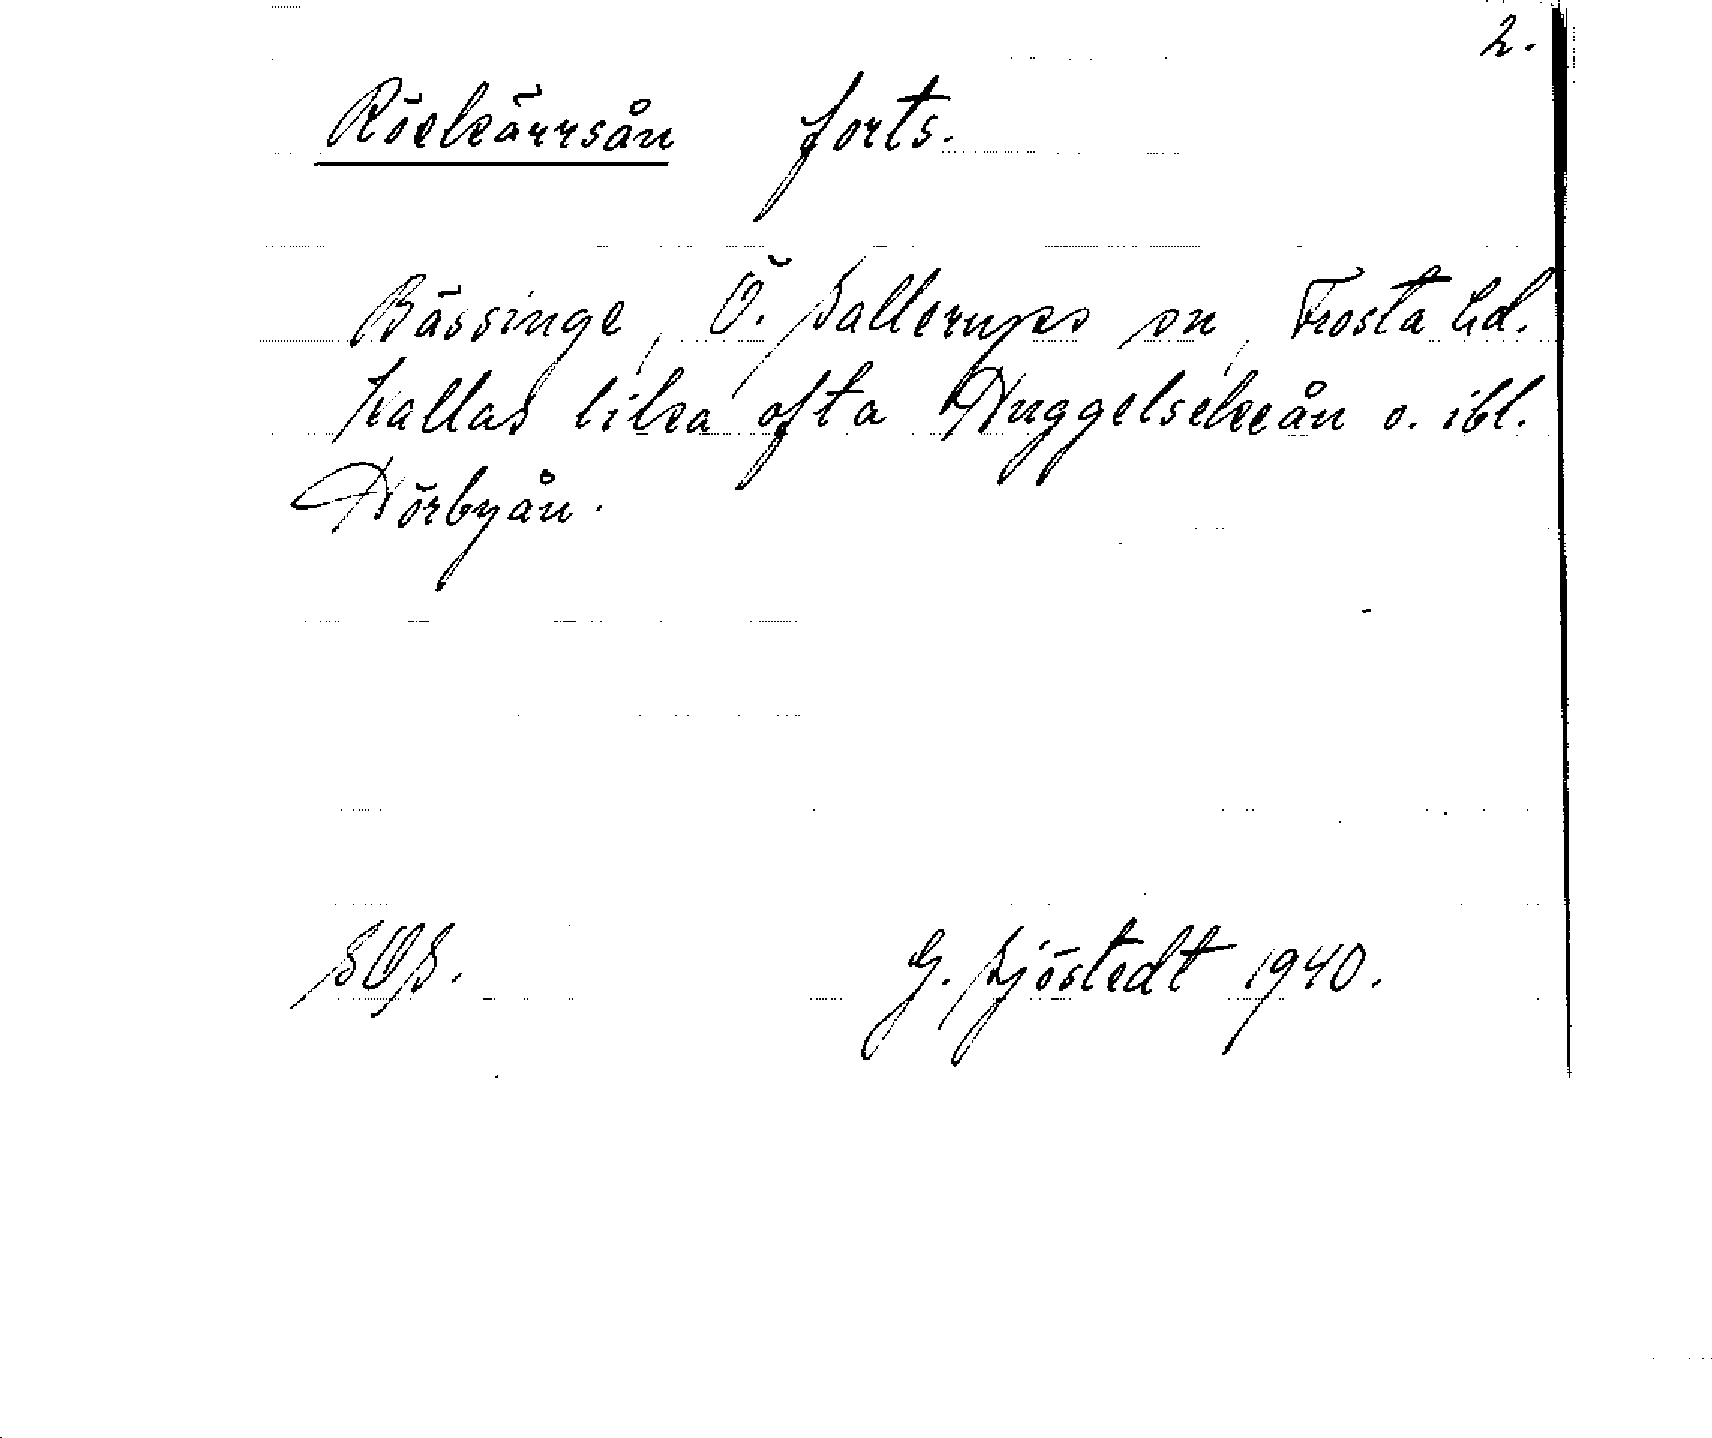 2.
Röekärrsån forts.
Bässinge, Ö. Sallerups sn, Frosta hd.
Kallas lika ofta Huggelsekeån o. ibl.
Hörbyån.
SOS. G. Sjöstedt 1940.